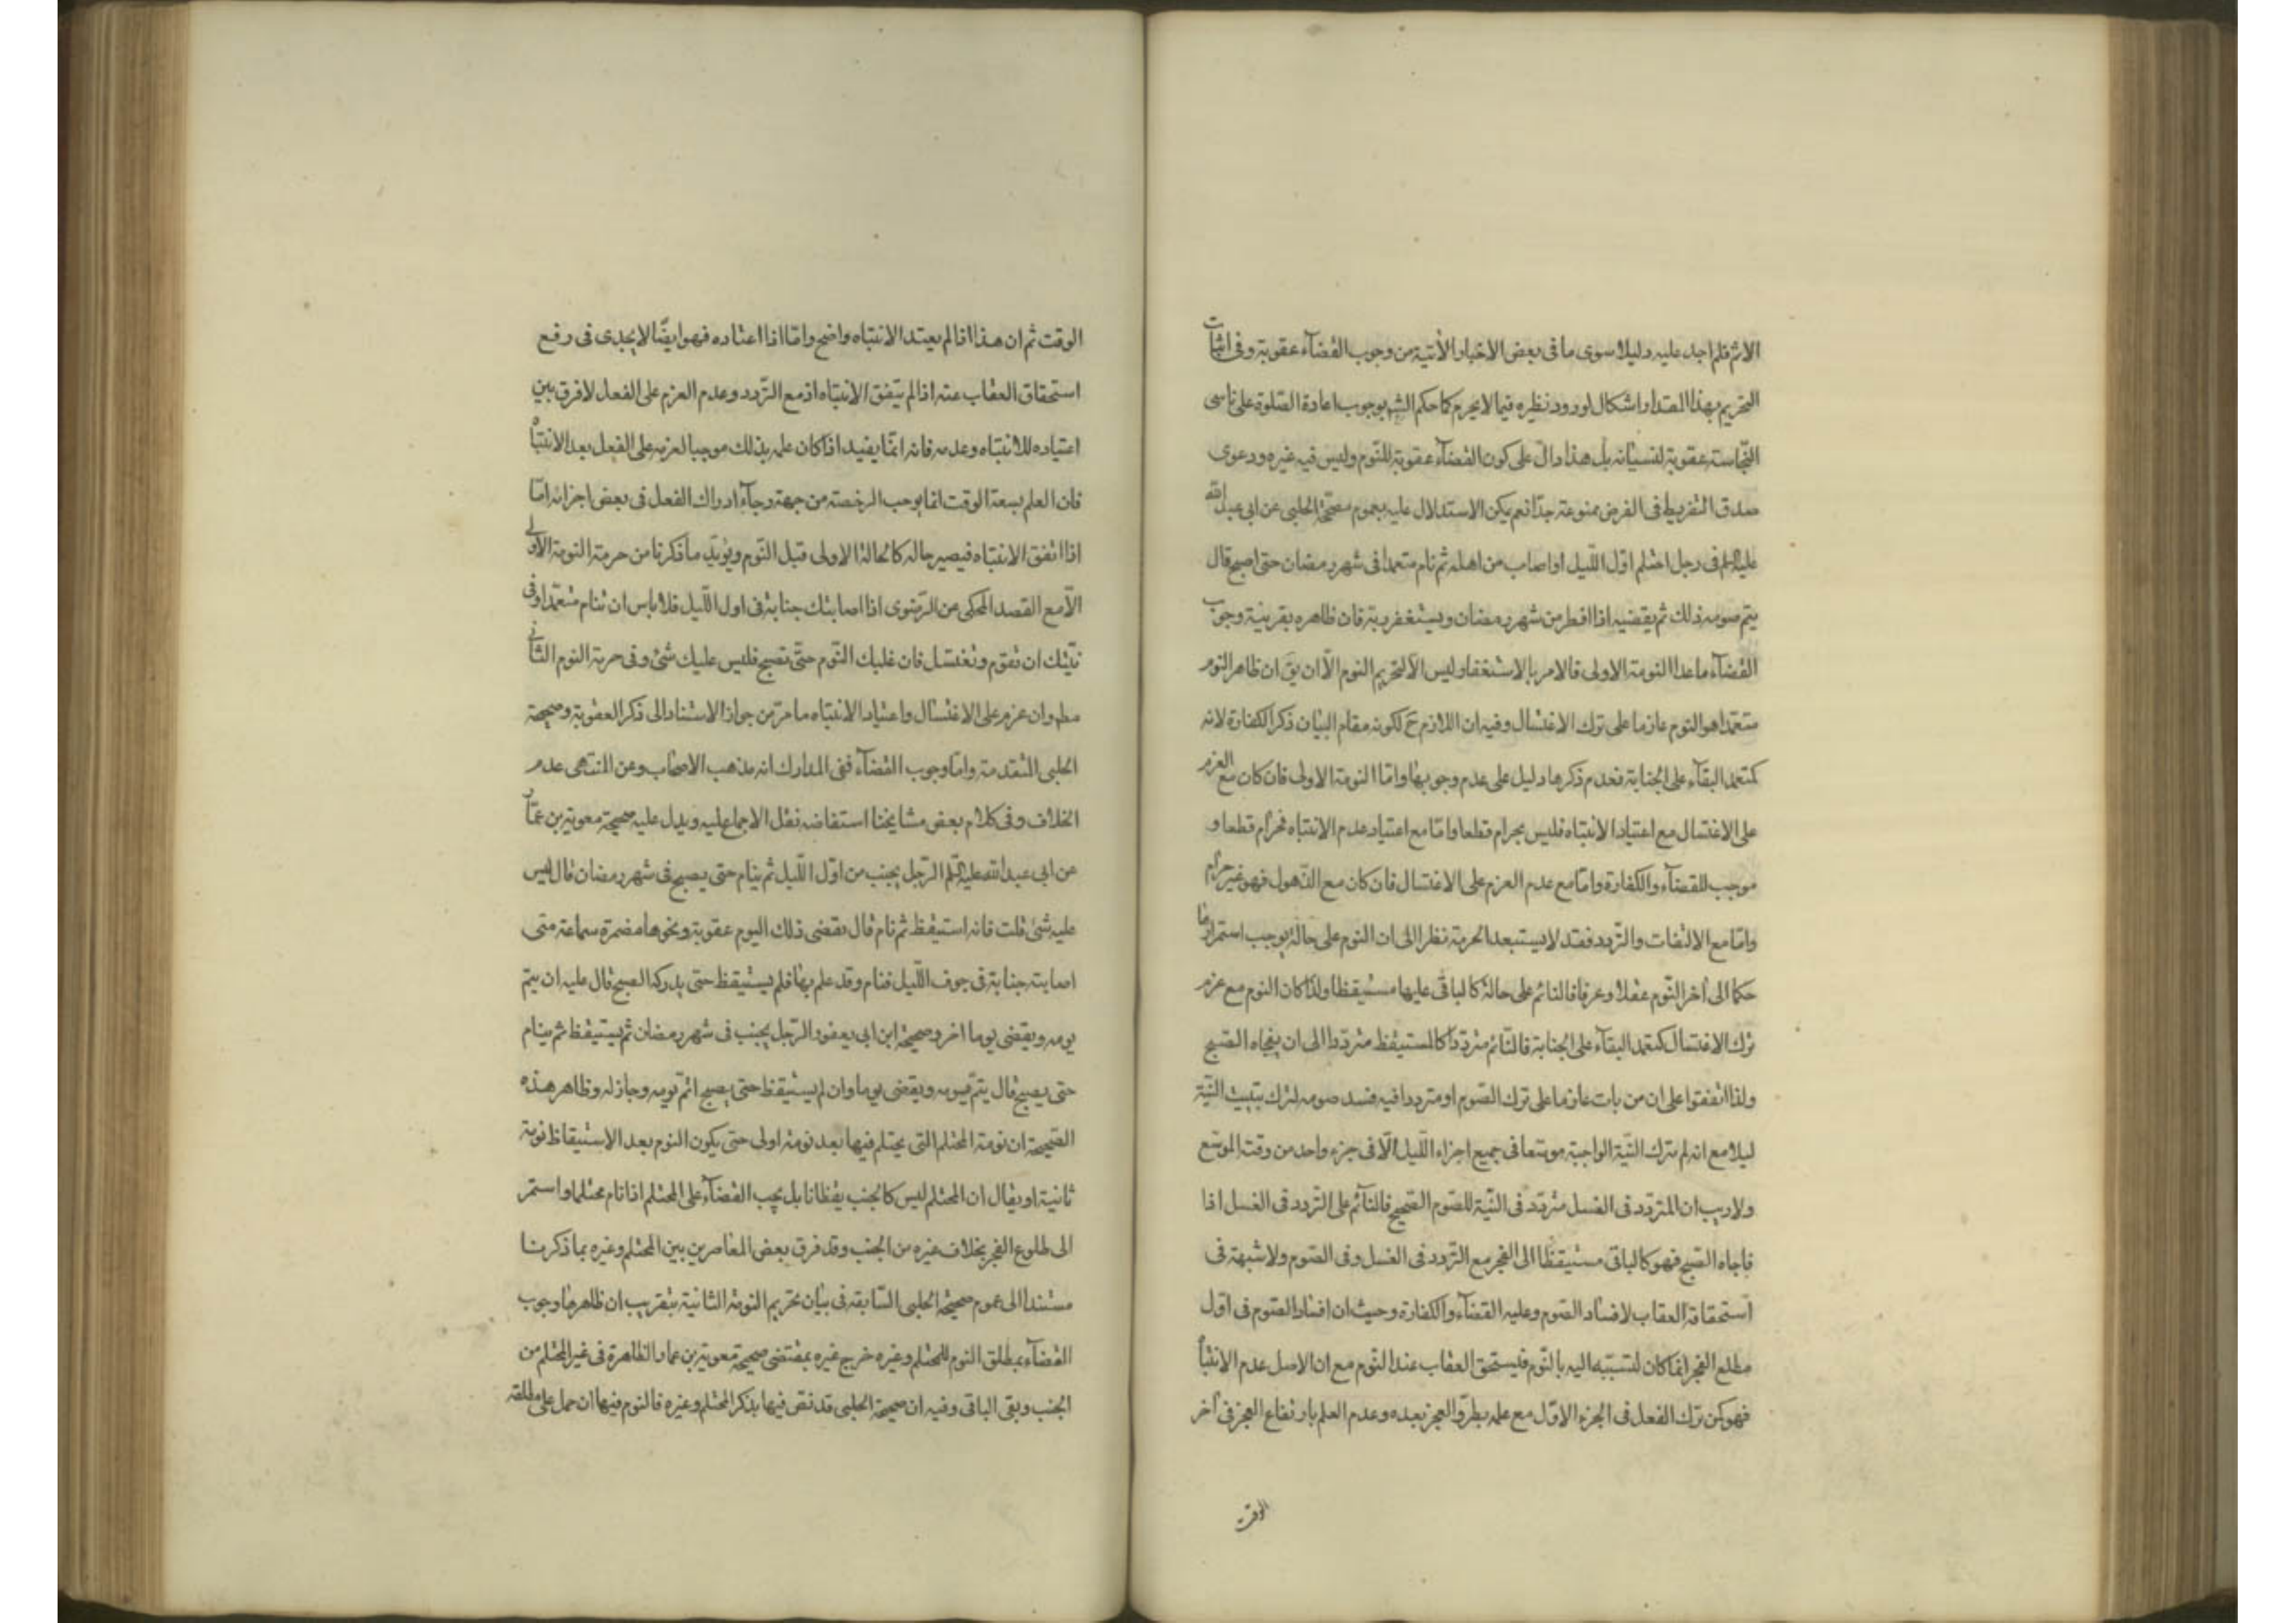 الاثر فلم اجد عليه دليلا سوى ما فى بعض الاخبار الآتية من وجوب القضآء عقوبة وفى اثبات
التحريم بهذا المقدار اشكال لورود نظيره فيما لايحرم كما حكم الشم بوجوب اعادة الصّلوة على ناسى
النّجاسته عقوبة لنسيانه بل هذا دالّ على كون القضآء عقوبة للنّوم وليس فيه غيره ودعوى
صدق التفريط فى الفرض ممنوعة جدّا نعم يمكن الاستدلال عليه بعموم صحيحة الحلبى عن ابى عبد الله
عليه السلم فى رجل احتلم اوّل اللّيل او اصاب من اهله ثم نام متعمدا فى شهر رمضان حتى اصبح قال
يتم صومه ذلك ثم يقضيه اذا افطر من شهر رمضان ويستغفر ربه فان ظاهره بقرينة وجوب
القضآء ما عدا النومة الاولى فالامر بالاستغفار ليس الّا لتحريم النوم الّا ان يق ان ظاهر النوم
متعمدا هو النوم عازما على ترك الاغتسال وفيه ان اللازم ح لكونه مقام البيان ذكر الكفارة لانه
كمتعمد البقآء على الجنابة فعدم ذكرها دليل على عدم وجوبها وامّا النومة الاولى فان كان مع العزم
على الاغتسال مع اعتياد الانتباه فليس بحرام قطعا وامّا مع اعتياد عدم الانتباه فحرام قطعا و
موجب للقضآء والكفارة وامّا مع عدم العزم على الاغتسال فان كان مع الذّهول فهو غير حرام
وامّا مع الالتفات والتّردد فقد لايستبعد الحرمة نظرا الى ان النوم على حالة يوجب استمرارها
حكما الى آخر النّوم عقلا وعرفا فالنائم على حالة كالباقى عليها مستيقظا ولذا كان النوم مع عزم
ترك الاغتسال كمتعمد البقآء على الجنابة فالنّائم متردّدا كالمستيقظ متردّدا الى ان يفجاه الصّبح
ولذا اتفقوا على ان من بات عازما على ترك الصّوم او مترددا فيه فسد صومه لترك تبييت النّيّة
ليلا مع انه لم يترك النّيّة الواجبة موسّعا فى جميع اجزاء اللّيل الّا فى جزء واحد من وقت الموسّع
ولاريب ان المتردّد فى الغسل متردّد فى النّيّة للصّوم الصّحيح فالنّائم على التّردد فى الغسل اذا
فاجاه الصّبح فهو كالباقى مستيقظا الى الفجر مع التّردد فى الغسل وفى الصّوم ولاشبهة فى
استحقاقه العقاب لافساد الصّوم وعليه القضآء والكفارة وحيث ان افساد الصّوم فى اوّل
مطلع الفجر انما كان لتسبّبه اليه بالنّوم فيستحق العقاب عند النّوم مع ان الاصل عدم الانتباه
فهو كمن ترك الفعل فى الجزء الاوّل مع علمه بطروّ العجز بعده وعدم العلم بارتفاع العجز فى آخر
الوقت
الوقت ثم ان هذا اذا لم يعتد الانتباه واضح وامّا اذا اعتاده فهو ايضًا لايجدى فى رفع
استحقاق العقاب عنه اذا لم يتفق الانتباه اذ مع التّردد وعدم العزم على الفعل لافرق بين
اعتياده للانتباه وعدمه فانه انّما يفيد اذا كان علمه بذلك موجبا لعزمه على الفعل بعد الانتباه
فان العلم بسعة الوقت انما يوجب الرخصة من جهة رجآء ادراك الفعل فى بعض اجزائه امّا
اذا اتفق الانتباه فيصير حاله كالحالة الاولى قبل النّوم ويؤيّد ما ذكرنا من حرمة النومة الاولى
الّا مع القصد المحكى عن الرّضوى اذا اصابتك جنابة فى اول اللّيل فلا باس ان تنام متعمّدا وفى
نيّتك ان تقوم وتغتسل فان غلبك النّوم حتّى تصبح فليس عليك شئ وفى حرمة النوم الثانى
مطم وان عزم على الاغتسال واعتياد الانتباه ما مرّ من جواز الاستناد الى ذكر العقوبة وصحيحة
الحلبى المتقدمة وامّا وجوب القضآء ففى المدارك انه مذهب الاصحاب وعن المنتهى عدم
الخلاف وفى كلام بعض مشايخنا استفاضه نقل الاجماع عليه ويدل عليه صحيحة معوية بن عمّار
عن ابى عبد الله عليه السلم الرّجل يجنب من اوّل اللّيل ثم ينام حتى يصبح فى شهر رمضان قال ليس
عليه شئ قلت فانه استيقظ ثم نام قال يقضى ذلك اليوم عقوبة ونحوها مضمرة سماعة متى
اصابته جنابة فى جوف اللّيل فنام وقد علم بها فلم يستيقظ حتى يدركه الصبح قال عليه ان يتم
يومه ويقضى يوما اخر وصحيحة ابن ابى يعفور الرّجل يجنب فى شهر رمضان ثم يستيقظ ثم ينام
حتى يصبح قال يتمّ يومه ويقضى يوما وان لم يستيقظ حتى يصبح اتمّ يومه وجاز له وظاهر هذه
الصّحيحة ان نومة المحتلم التى يحتلم فيها بعد نومة اولى حتى يكون النوم بعد الاستيقاظ نومة
ثانية او يقال ان المحتلم ليس كالجنب يقظانا بل يجب القضآء على المحتلم اذا نام محتلما واستمر
الى طلوع الفجر بخلاف غيره من الجنب وقد فرق بعض المعاصرين بين المحتلم وغيره بما ذكرنا
مستندا الى عموم صحيحة الحلبى السّابقه فى بيان تحريم النومة الثانية بتقريب ان ظاهرها وجوب
القضآء بمطلق النوم للمحتلم وغيره خرج غيره بمقتضى صحيحة معوية بن عمار الظاهرة فى غير المحتلم من
الجنب وبقى الباقى وفيه ان صحيحة الحلبى قد نصّ فيها بذكر المحتلم وغيره فالنوم فيها ان حمل على مطلقه